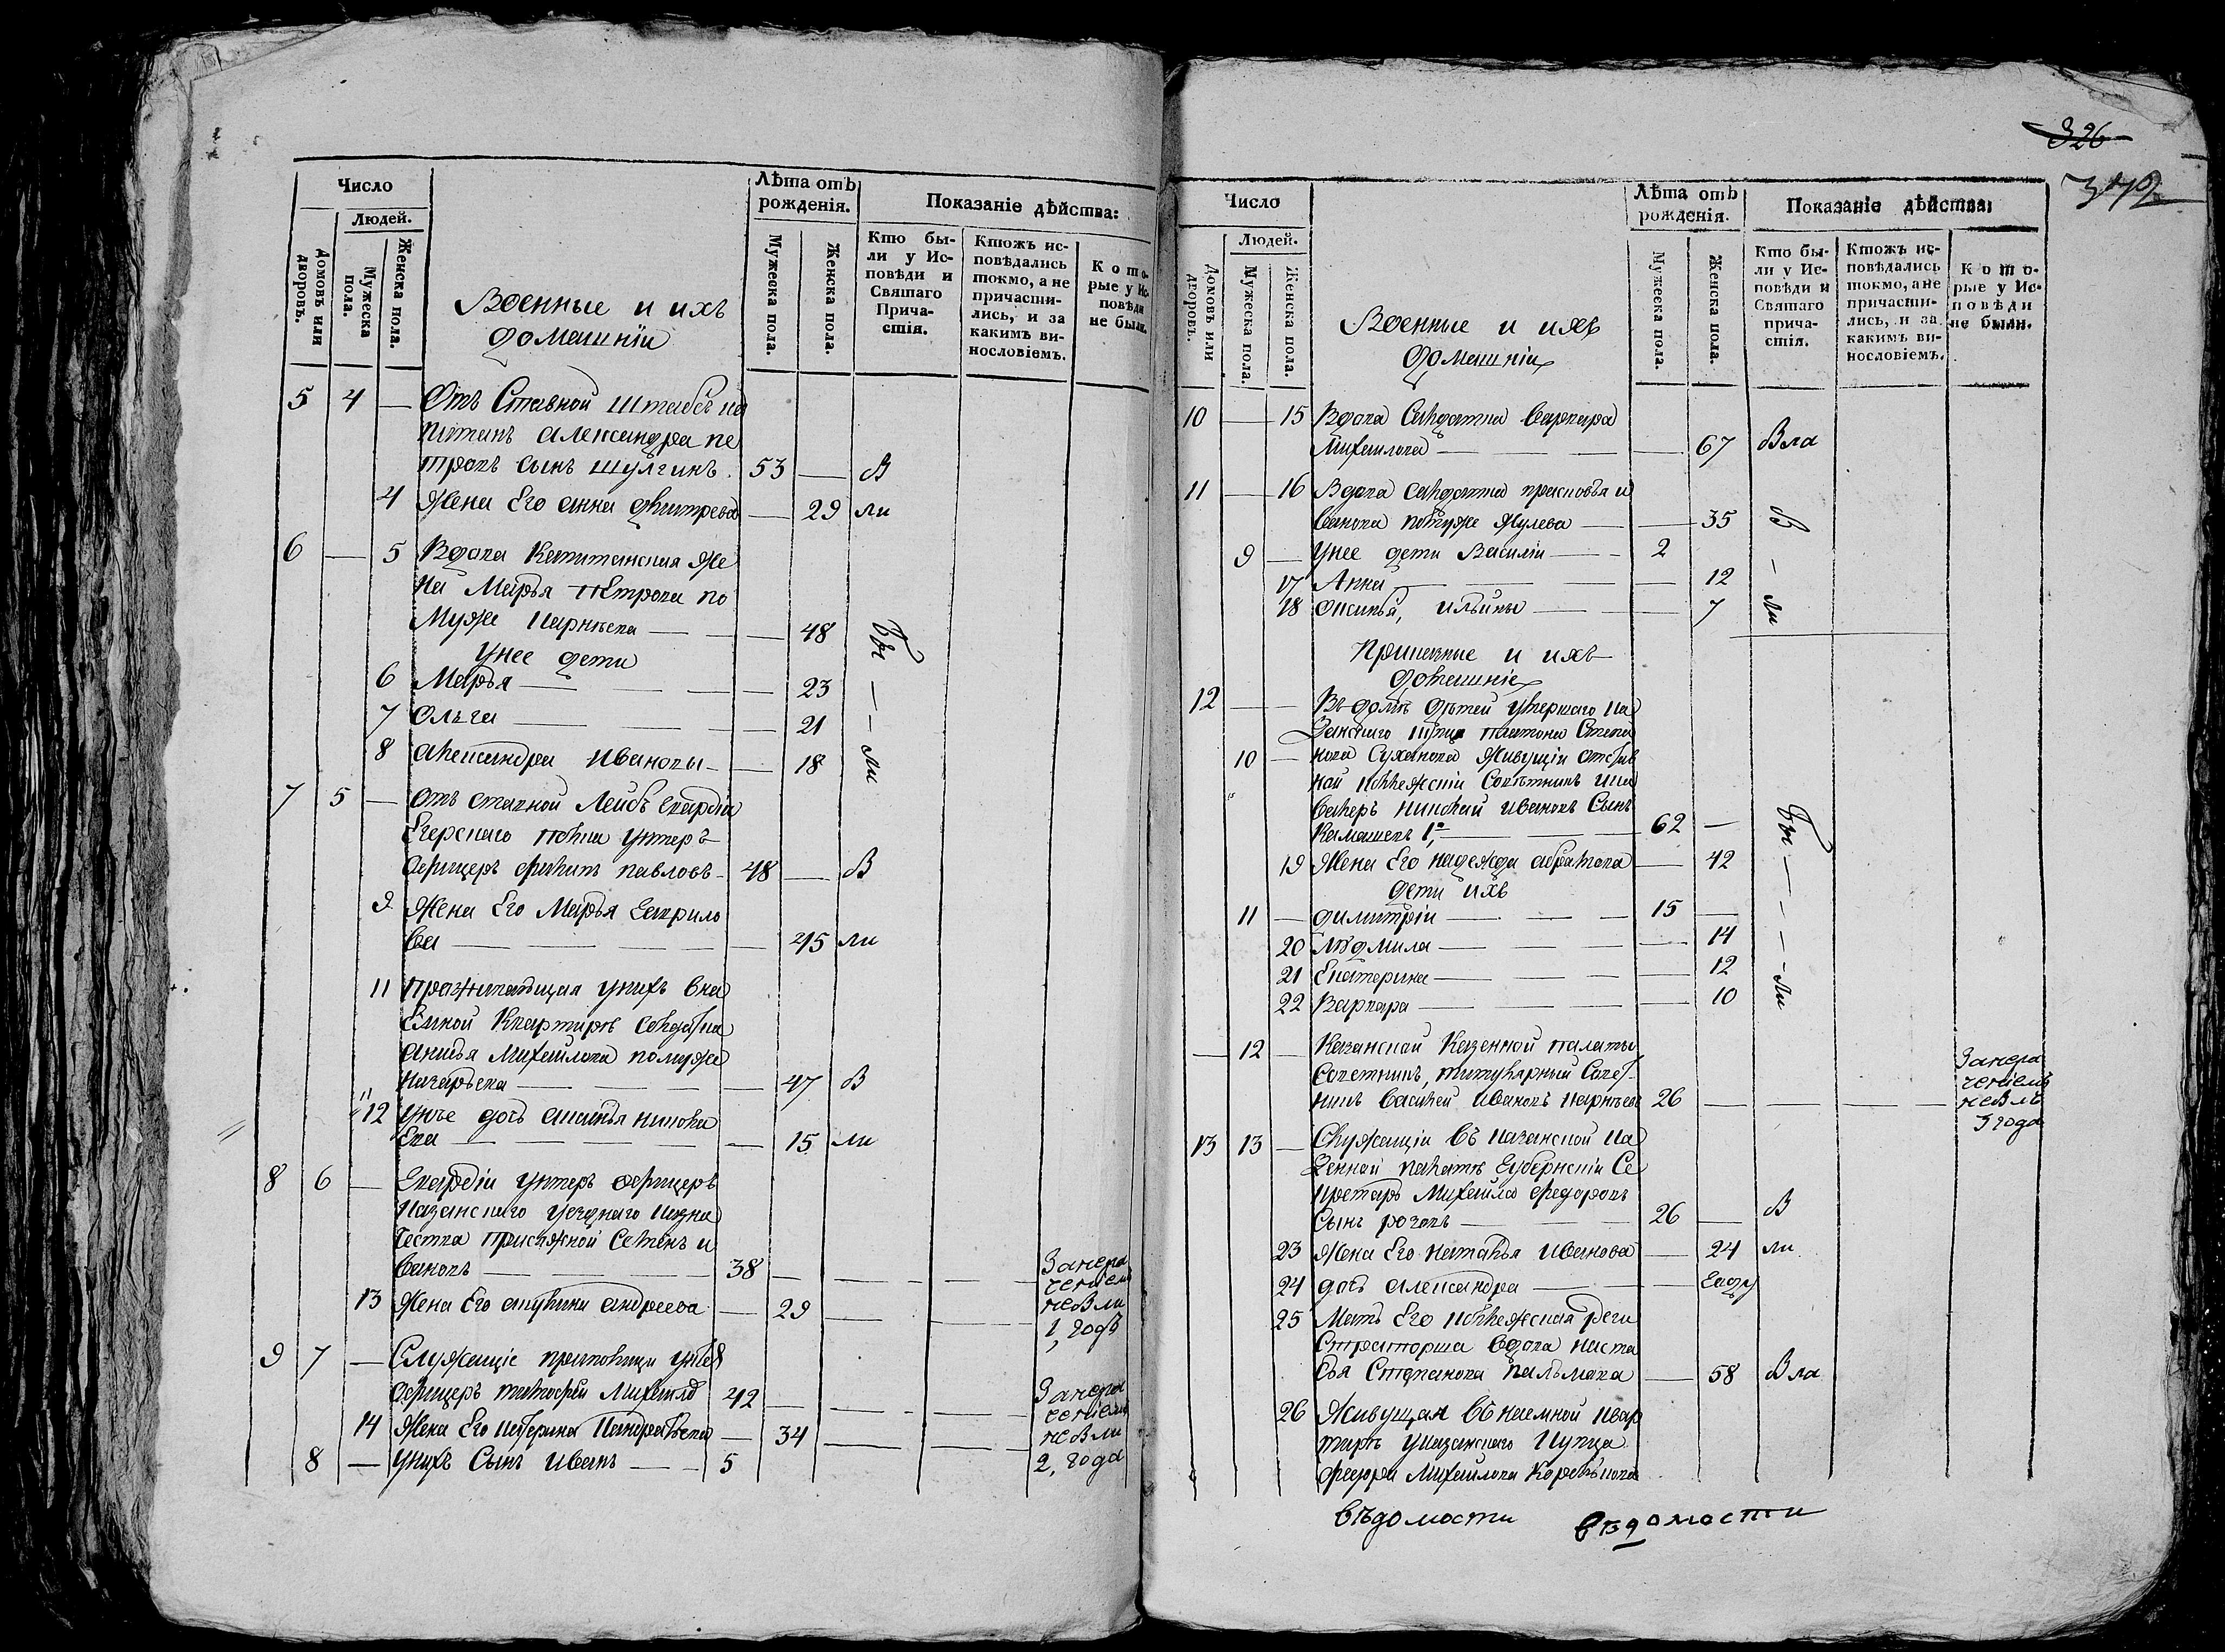 Число
Людей.
Домовъ или дворовъ.
Мужеска пола.
Женска пола.
Военные и ихъ
домашніи
Лѣта отъ рожденія.
Мужеска пола.
Женска пола.
Показаніе дѣйства:
Кто бы-
ли у Ис-
повѣди и
Святаго
Прича-
стія.
Ктожъ ис-
повѣдались
токмо, а не
причасти-
лись, и за
какимъ ви-
нословіемъ.
Кото-
рые у Ис-
повѣди
не были.
5 4 — Отъ Ставной штабсъ ка
питанъ Александра пе
тровъ сынъ шулгинъ 53 — В
4 Жена Его анна дмитрева — 29 ли
6 — 5 Вдова Капитанская Же
на Марья Петрова по
Муже — 48 Бы
Унее дети
6 Марья — 23 —
7 Ольга — 21 —
8 Александра Ивановы — 18 ли
7 5 — Отъ ставной Лейбъ гвардіи
Егерскаго полка унтеръ
офицеръ филипъ павловъ 48 — В
9 Жена Его Марья Гаврило
ва — 45 ли
11 Проживающая унихъ вна
емной квартирѣ солдатка
Михайлова помуже
— 47 В
12 унее дочь
— 15 ли
8 6 — Гвардіи унтеръ офицеръ
Казанскаго уезднаго Казна
чества Присяжной Семенъ и
вановъ 38 — — — Занера
чениемъ
13 Жена Его акулина андреева — 29 — — небыли
1, годъ
9 7 — Служащіе
офицеръ тимофей Михайло 42 — — Занера
чениемъ
14 Жена Его Катерина Кандратьева — 34 — — небыли
8 — унихъ Сынъ Иванъ 5 2, года
326
Число
Людей.
Домовъ или дворовъ.
Мужеска пола.
Женска пола.
Военные и ихъ
домашніи
Лѣта отъ рожденія.
Мужеска пола.
Женска пола.
Показаніе дѣйства:
Кто бы-
ли у Ис-
повѣди и
Святаго
прича-
стія.
Ктожъ ис-
повѣдались
токмо, а не
причасти-
лись, и за
какимъ ви-
нословіемъ.
Кото-
рые у Ис-
повѣди
не были.
10 — 15 Вдова Салдатка варвара
Михайлова — 67 Вла
11 — 16 Вдова салдатка прасковья и
ванова помуже Жулева — 35 В
9 — Унее дети Василіи 2 —
17 Анна — 12
18 Ильины — 7 ли
Приказные и ихъ
домашніе
12 — — Въ домѣ дѣтей умершаго Ка
занскаго купца платона Степа
10 — нова Суханова Живущіи отстав
ной Коллежскіи Совѣтникъ и ка
валеръ николай ивановъ Сынъ
Камашевъ 1й 62 — Бы
19 Жена Его надежда абрамова — 42 —
дети ихъ
11 — димитріи 15 — —
20 Людмила — 14 —
21 Екатерина — 12 —
22 Варвара — 10 ли
— 12 — Казанской Казенной палаты
Советникъ, титулярный Совет
никъ василей Ивановъ 26 — — — Занера
чениемъ
небылъ
3 года
13 13 — Служащіи въ казанской ка
зенной палатѣ Губернскіи Се
кретарь Михайла федоровъ
Сынъ 26 — В
23 Жена Его наталья иванова — 24 ли
24 дочь александра —
25 Мать Его коллежская реги
страторша вдова наста
сья Степанова — 58 Вла
26 Живущая въ наемной квар
тирѣ указанскаго купца
федора Михайлова
вѣдомости вѣдомости